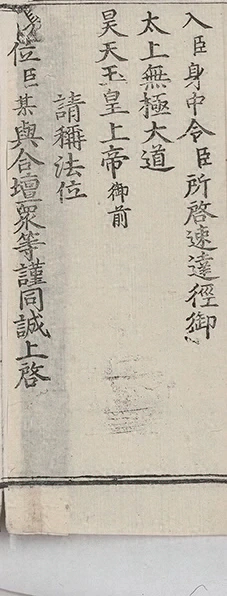 入臣身中令臣所啓速達徑御
太上無極大道
昊天玉皇上帝御前
請稱法位
位臣某與合壇衆等謹同誠上啓